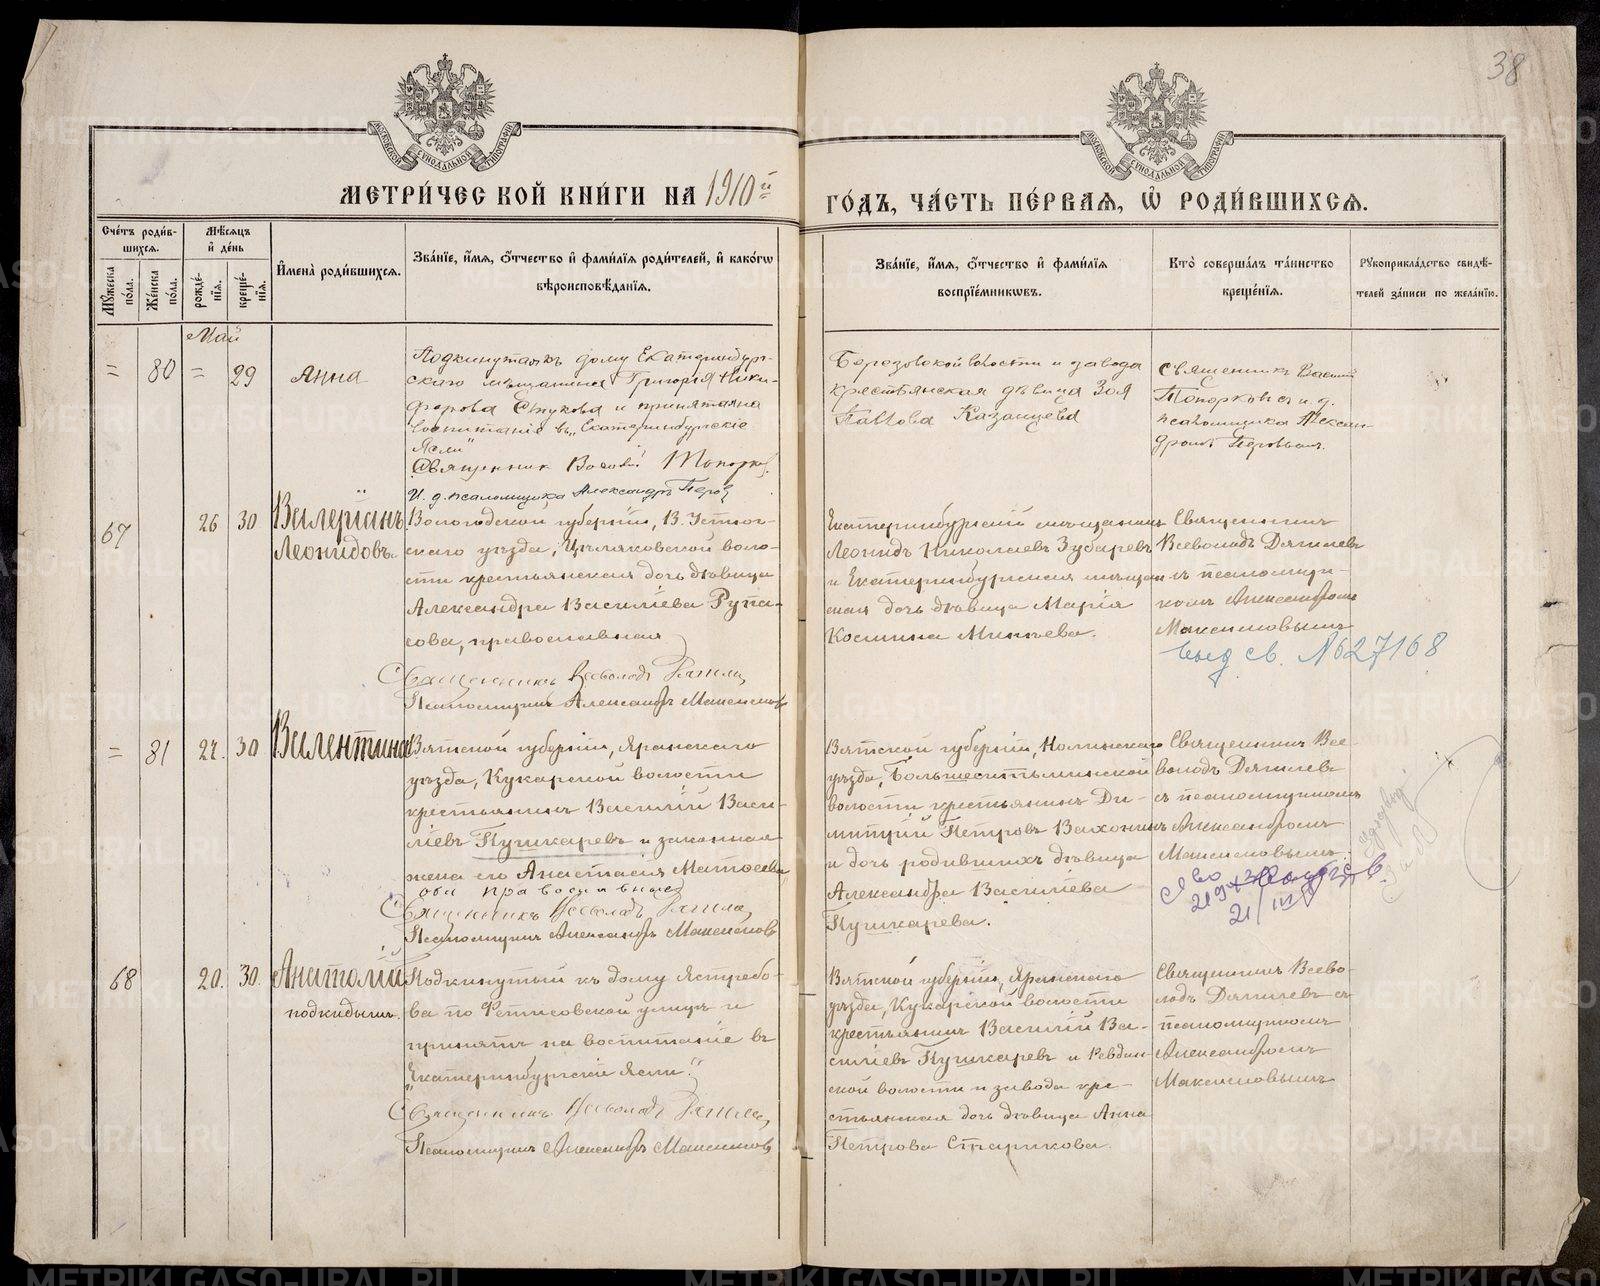 38
МОСКОВСКОЙ СУНОДАЛЬНОЙ ТИПОГРАФІИ
МОСКОВСКОЙ СУНОДАЛЬНОЙ ТИПОГРАФІИ
МЕТРИ́ЧЕСКОЙ КНИ́ГИ НА 1910 й
ГО́ДЪ, ЧА́СТЬ ПЕ́РВАѦ, Ѡ҆ РОДИ́ВШИХСѦ.
Сче́тъ роди́в-
шихсѧ.
Мꙋ́жеска по́ла.
Же́нска по́ла.
Мѣ́сѧцъ и҆ де́нь
рожде́-
нїѧ.
креще́-
нїѧ.
И҆мена̀ роди́вшихсѧ.
Зва́нїе, и҆́мѧ, ѻ҆́тчество и҆ фами́лїѧ роди́телей, и҆ како́гѡ
вѣроисповѣ́данїѧ.
Зва́нїе, и҆́мѧ, ѻ҆́тчество и҆ фами́лїѧ
воспрїе́мникѡвъ.
Кто̀ соверша́лъ та́инство
креще́нїѧ.
Рꙋкоприкла́дство свидѣ́-
телей за́писи по жела́нїю.
Май
= 80 = 29
Анна
Подкинутая къ дому Екатеринбург-
скаго мѣщанина Григорія Ники-
форова Стукова и принята на
воспитаніе въ „Екатеринбургскіе
Ясли"
Священникъ Василій Топорков
И. д. псаломщика Александръ Перов
Березовской волости и завода
крестьянская дѣвица Зоя
Павлова Казанцева
Священникъ Василій
Топорковъ и. д.
псаломщика Алексан-
дромъ Перовымъ.
67 26 30
Валеріанъ
Леонидовъ
Вологодской губерніи, В. Устюг-
скаго уѣзда, воло-
сти крестьянская дочь дѣвица
Александра Василіева Рупа-
сова, православная
Священникъ Всеволодъ Дягилев
Псаломщикъ Александръ Максимовъ
Екатеринбургскій мѣщанинъ
Леонидъ Николаевъ Зубаревъ
и Екатеринбургская мѣщан-
ская дочь дѣвица Марія
Космина Минѣева.
Священникъ
Всеволодъ Дягилевъ
съ псаломщи-
комъ Александромъ
Максимовымъ
выд св. №627168
= 81 27. 30
Валентина
Вятской губерніи, Яранскаго
уѣзда, Кукарской волости
крестьянинъ Василій Васи-
ліевъ Пушкаревъ и законная
жена его Анастасія Матвеева
оба православные
Священникъ Всеволодъ Дягилев
Псаломщикъ Александръ Максимовъ
Вятской губерніи, Нолинскаго
уѣзда, Большеситьминской
волости крестьянинъ Ди-
митрій Петровъ Вахонинъ
и дочь родившихъ дѣвица
Александра Василіева
Пушкарева.
Священникъ Все-
володъ Дягилевъ
съ псаломщикомъ
Александромъ
Максимовымъ.
21/III
68 20. 30.
Анатолій
подкидышъ.
Подкинутый къ дому Ястребо-
ва по Фетисовской улицѣ и
принятъ на воспитаніе въ
„Екатеринбургскіе Ясли."
Священникъ Всеволодъ Дягилев
Псаломщикъ Александръ Максимовъ
Вятской губерніи, Яранскаго
уѣзда, Кукарской волости
крестьянинъ Василій Ва-
силіевъ Пушкаревъ и Ревдин-
ской волости и завода кре-
стьянская дочь дѣвица Анна
Петрова Старикова.
Священникъ Всево-
лодъ Дягилевъ съ
псаломщикомъ
Александромъ
Максимовымъ
METRIKI.GASO-URAL.RU